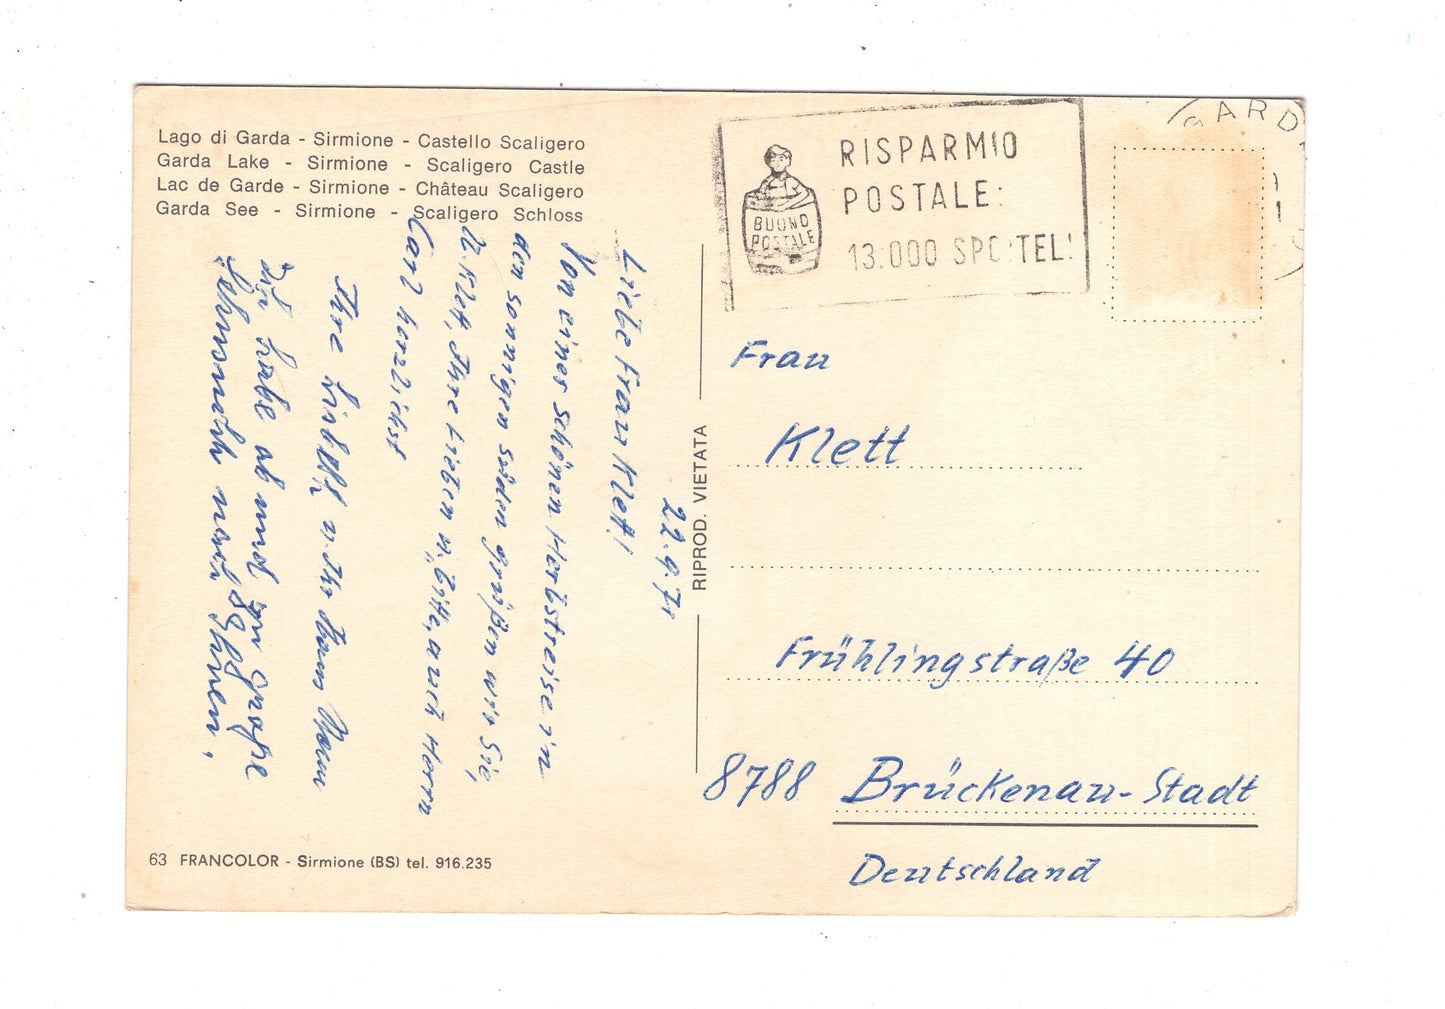 Lago di Garda - Sirmione - Castello Scaligero
Garda Lake - Sirmione - Scaligero Castle
Lac de Garde - Sirmione - Château Scaligero
Garda See - Sirmione - Scaligero Schloss
22.9.71
Liebe Frau Klett!
Von einer schönen Herbstreise in
den sonnigen Süden grüßen wir Sie,
Klett, Ihre Lieben u. bitte, auch Herrn
Carl herzlichst
Ihre
Ich habe ab und zu große
Sehnsucht nach Ihnen.
RIPROD. VIETATA
63 FRANCOLOR - Sirmione (BS) tel. 916.235
RISPARMIO
POSTALE:
13.000 SPORTELLI
BUONO
POSTALE
GARD
Frau
Klett
Frühlingstraße 40
8788 Brückenau-Stadt
Deutschland